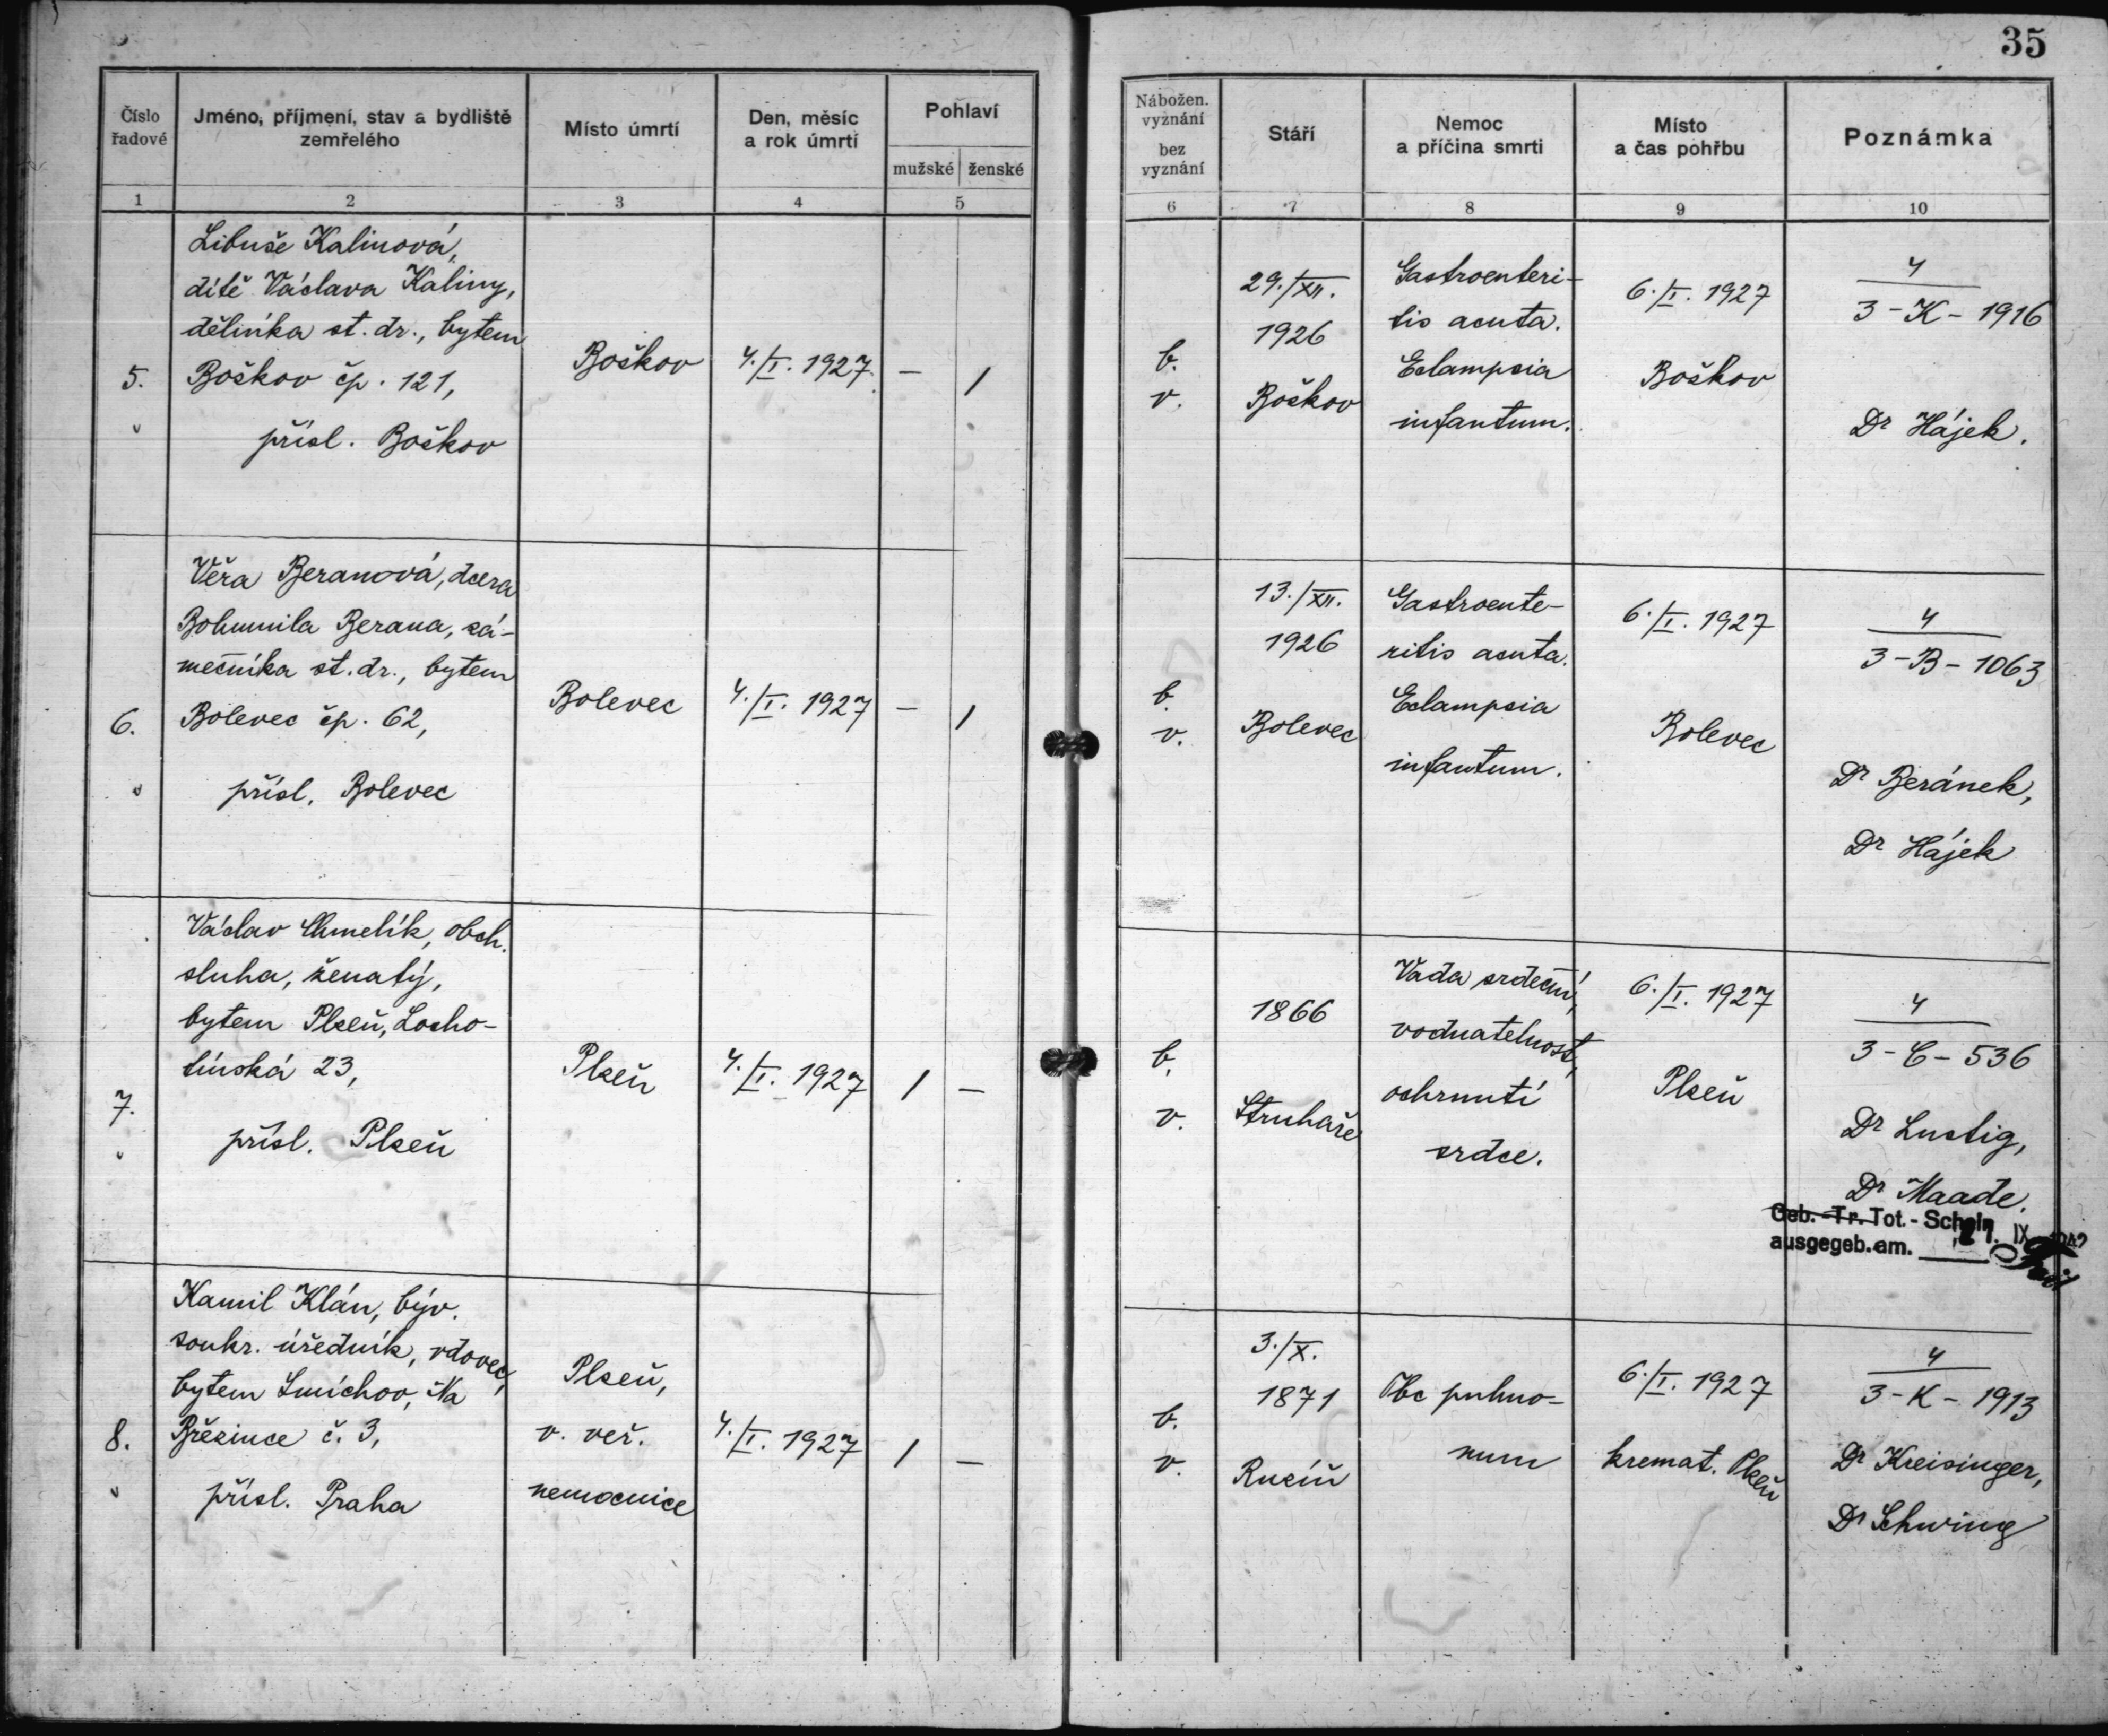 35
Číslo
řadové
Jméno, příjmení, stav a bydliště
zemřelého
Místo úmrtí
Den, měsíc
a rok úmrtí
Pohlaví
mužské
ženské
1
2
3
4
5
Nábožen.
vyznání
bez
vyznání
Stáří
Nemoc
a příčina smrti
Místo
a čas pohřbu
Poznámka
6
7
8
9
10
5.
Libuše Kalinová,
dítě Václava Kaliny,
dělníka st. dr., bytem
Boškov čp. 121,
přísl. Boškov
Boškov
4./I. 1927
—
/
b.
v.
29./XII.
1926
Boškov
Gastroenteri-
tis acuta.
Eclampsia
infantum.
6./I. 1927
Boškov
4
3-K-1916
Dr Hájek.
6.
Věra Beranová, dcera
Bohumila Berana, zá-
mečníka st. dr., bytem
Bolevec čp. 62,
přísl. Bolevec
Bolevec
4./I. 1927
—
/
b.
v.
13./XII.
1926
Bolevec
Gastroente-
ritis acuta.
Eclampsia
infantum.
6./I. 1927
Bolevec
4
3-B-1063
Dr Beránek,
Dr Hájek
7.
Václav Chmelík, obch.
sluha, ženatý,
bytem Plzeň, Locho-
tínská 23,
přísl. Plzeň
Plzeň
4./I. 1927
/
—
b.
v.
1866
Struhaře
Vada srdeční,
vodnatelnost,
ochrnutí
srdce.
6./I. 1927
Plzeň
4
3-C-536
Dr Lustig,
Dr Maade.
Geb.-Tr. Tot.-Schein
ausgegeb. am. IX 1942
8.
Kamil Klán, býv.
soukr. úředník, vdovec,
bytem Smíchov, Na
Březince č. 3,
přísl. Praha
Plzeň,
v. veř.
nemocnice
4./I. 1927
/
—
b.
v.
3./X.
1871
Ruzíň
Tbc pulmo-
num
6./I. 1927
kremat. Plzeň
4
3-K-1913
Dr Kreisinger,
Dr Schwing